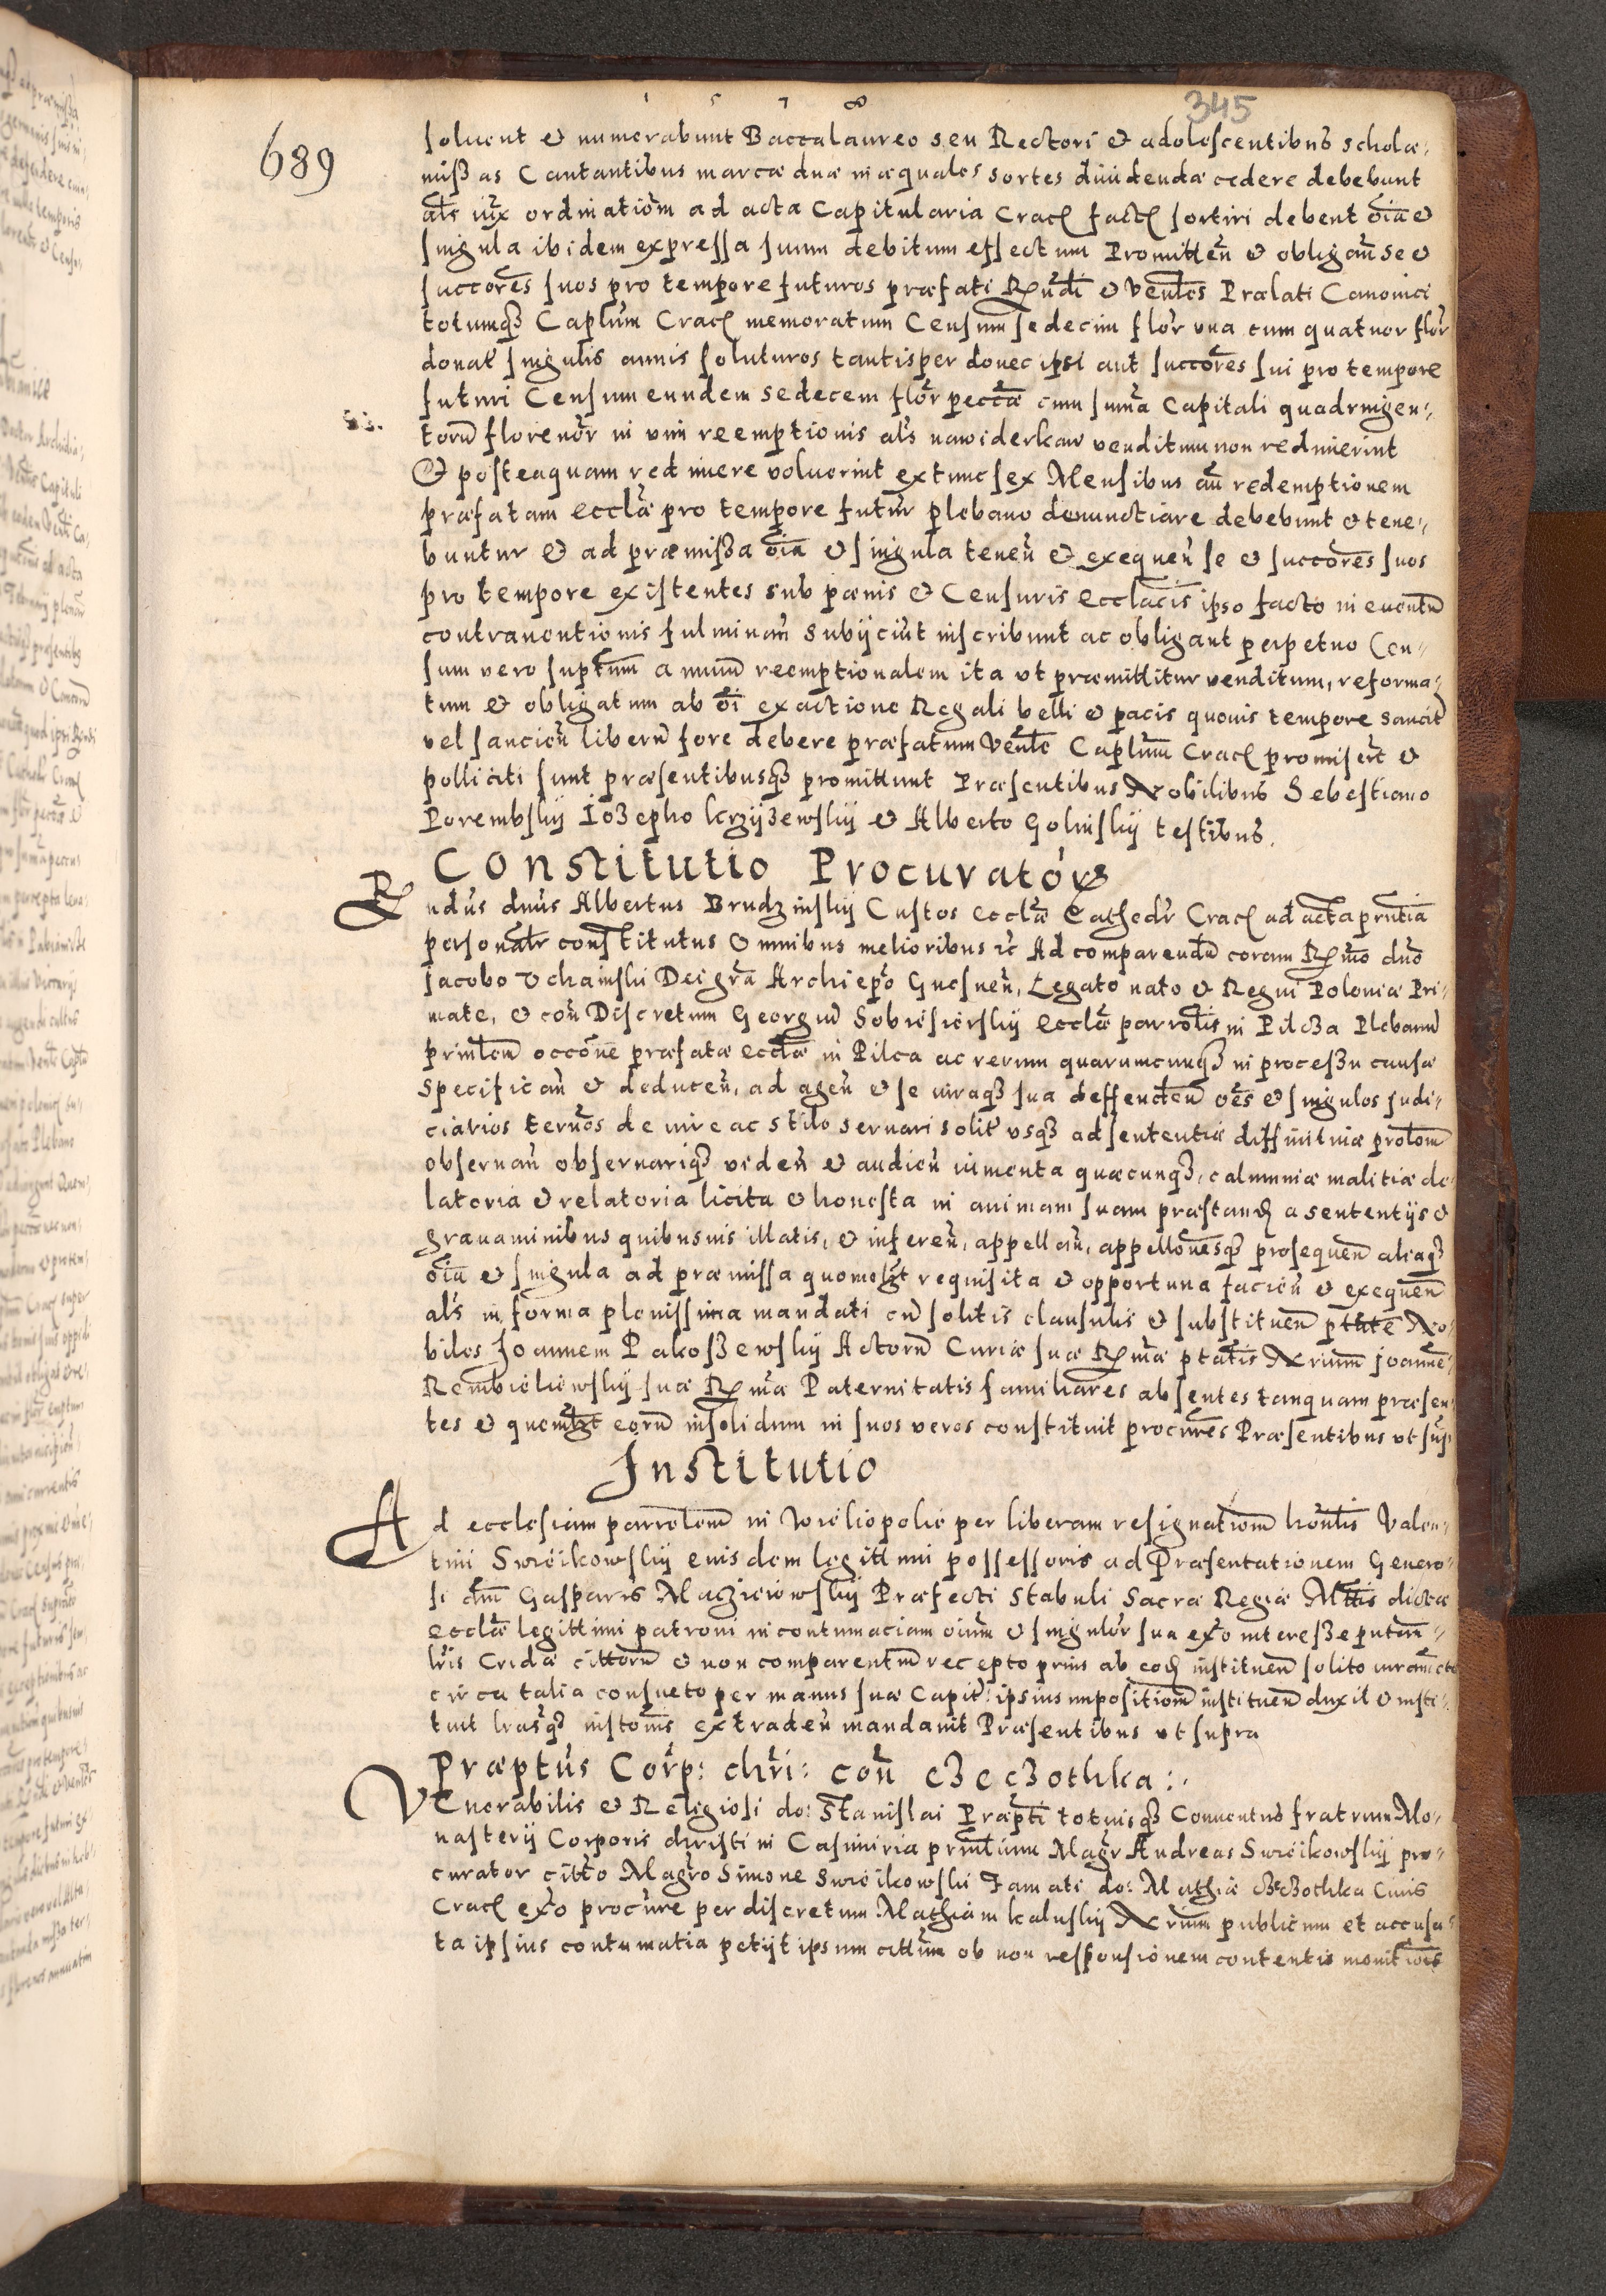 1 5 7 8
345
689
soluent et numerabunt Baccalaureo seu Rectori et adolescentibus scholæ
missas Cantantibus marcæ duæ in æquales sortes diuidendæ cedere debebunt
als iux ordinatiom ad acta Capitularia Crac fact sortiri debent oia et
singula ibidem expressa suum debitum effectum Promitten et obligan se et
succores suos pro tempore futuros præfati Rndi et Venles Prælati Canonici
totumqз Caplum Crac memoratum Censum sedecim flor vna cum quatuor flor
donat singulis annis soluturos tantisper donec ipsi aut succores sui pro tempore
futuri Censum eundem sedecem flor peccæ cum suma Capitali quadringen-
toru florenor in vim reemptionis als nawiderkaw venditum non redimerint
Et posteaquam redimere voluerint extunc sex Mensibus an redemptionem
præfatam ecclæ pro tempore futur plebano denunctiare debebunt et tene-
buntur et ad præmissa oia et singula tenen et exequen se et succores suos
pro tempore existentes sub pænis et Censuris ecclacis ipso facto in euentu
contrauentionis fulminan subijciut inscribunt ac obligant perpetuo Cen-
sum vero suptum annuu reemptionalem ita vt præmittitur venditum, reforma-
tum et obligatum ab oi exactione Regali belli et pacis quouis tempore sancit
vel sancien liberu fore debere præfatum Venle Caplum Crac promisert et
polliciti sunt præsentibusqз promittunt Præsentibus Nobilibus Sebestiano
Porembskij Iozepho krzijzewskij et Alberto Golinskij testibus.
Constitutio Procurator
Rndus dnus Albertus Brudzinskij Custos ecclæ Cathedr Crac ad acta prntia
personalr constitutus Omnibus melioribus etc Ad comparendu coram Rmo dno
Jacobo Vchainski Dei gra Archiepo Gnesnen, Legato nato et Regni Poloniæ Pri-
mate, et con Discretum Georgiu Sobiesierskij ecclæ parrolis in Pilcza Plebanu
prinlem occone præfatæ ecclæ in Pilca ac rerum quarumcunqз in processu causæ
specifican et deducen, ad agen et se iuraqз sua deffenden oes et singulos judi-
ciarios termos de iure ac stilo seruari solit vsqз ad sententiæ diffinitiuæ prolom
obseruan obseruariqз viden et audien iumenta quæcunqз, calumniæ malitiæ de-
latoria et relatoria licita et honesta in animam suam præstand a sententijs et
grauaminibus quibusuis illatis, et inferen, appellan, appellonesqз prosequen aliaqз
oia et singula ad præmissa quomolзt requisita et opportuna facien et exequen
als in forma plenissima mandati cu solitis clausulis et substituen ptate No-
biles Joannem Pakoszewskij Actoru Curiæ suæ Rmæ ptatis Nrium joanne
Rembieliowskij suæ Rmæ Paternitatis familiares absentes tanquam præsen-
tes et quemlзt eoru insolidum in suos veros constituit procures Præsentibus vt sup
Institutio
Ad ecclesiam parrolem in Wieliopolie per liberam resignatiom honlis Valen-
tini Swieikowskij eiusdem legittimi possessoris ad Præsentationem Genero-
si dni Gasparis Macziciowskij Præfecti stabuli Sacræ Regiæ Mttis dictæ
ecclæ legittimi patroni in contumaciam oium et singulor sua exo interesse putan
lris Cridæ cittoru et non comparentiu recepto prius ab eod instituen solito iuramcto
circa talia consueto per manus suæ Capit: ipsius impositiom instituen duxit et insti-
tuit lrasqз instonis extraden mandauit Præsentibus vt supra
Præptus Corp: chri: con czeczothka:.
Venerabilis et Religiosi do: Stanislai Præpti totiusqз Conuentus fratrum Mo-
nasterij Corporis christi in Casimiria prinlium Magr Andreas Swieikowskij pro-
curator citto Magro Simone Swieikowski Famati do: Mathiæ Czeczothka Ciuis
Crac exo procure per discretum Mathiam kaluskij Nrium publicum et accusa-
ta ipsius contumatia petijt ipsum cittum ob non responsionem contentis monitiois